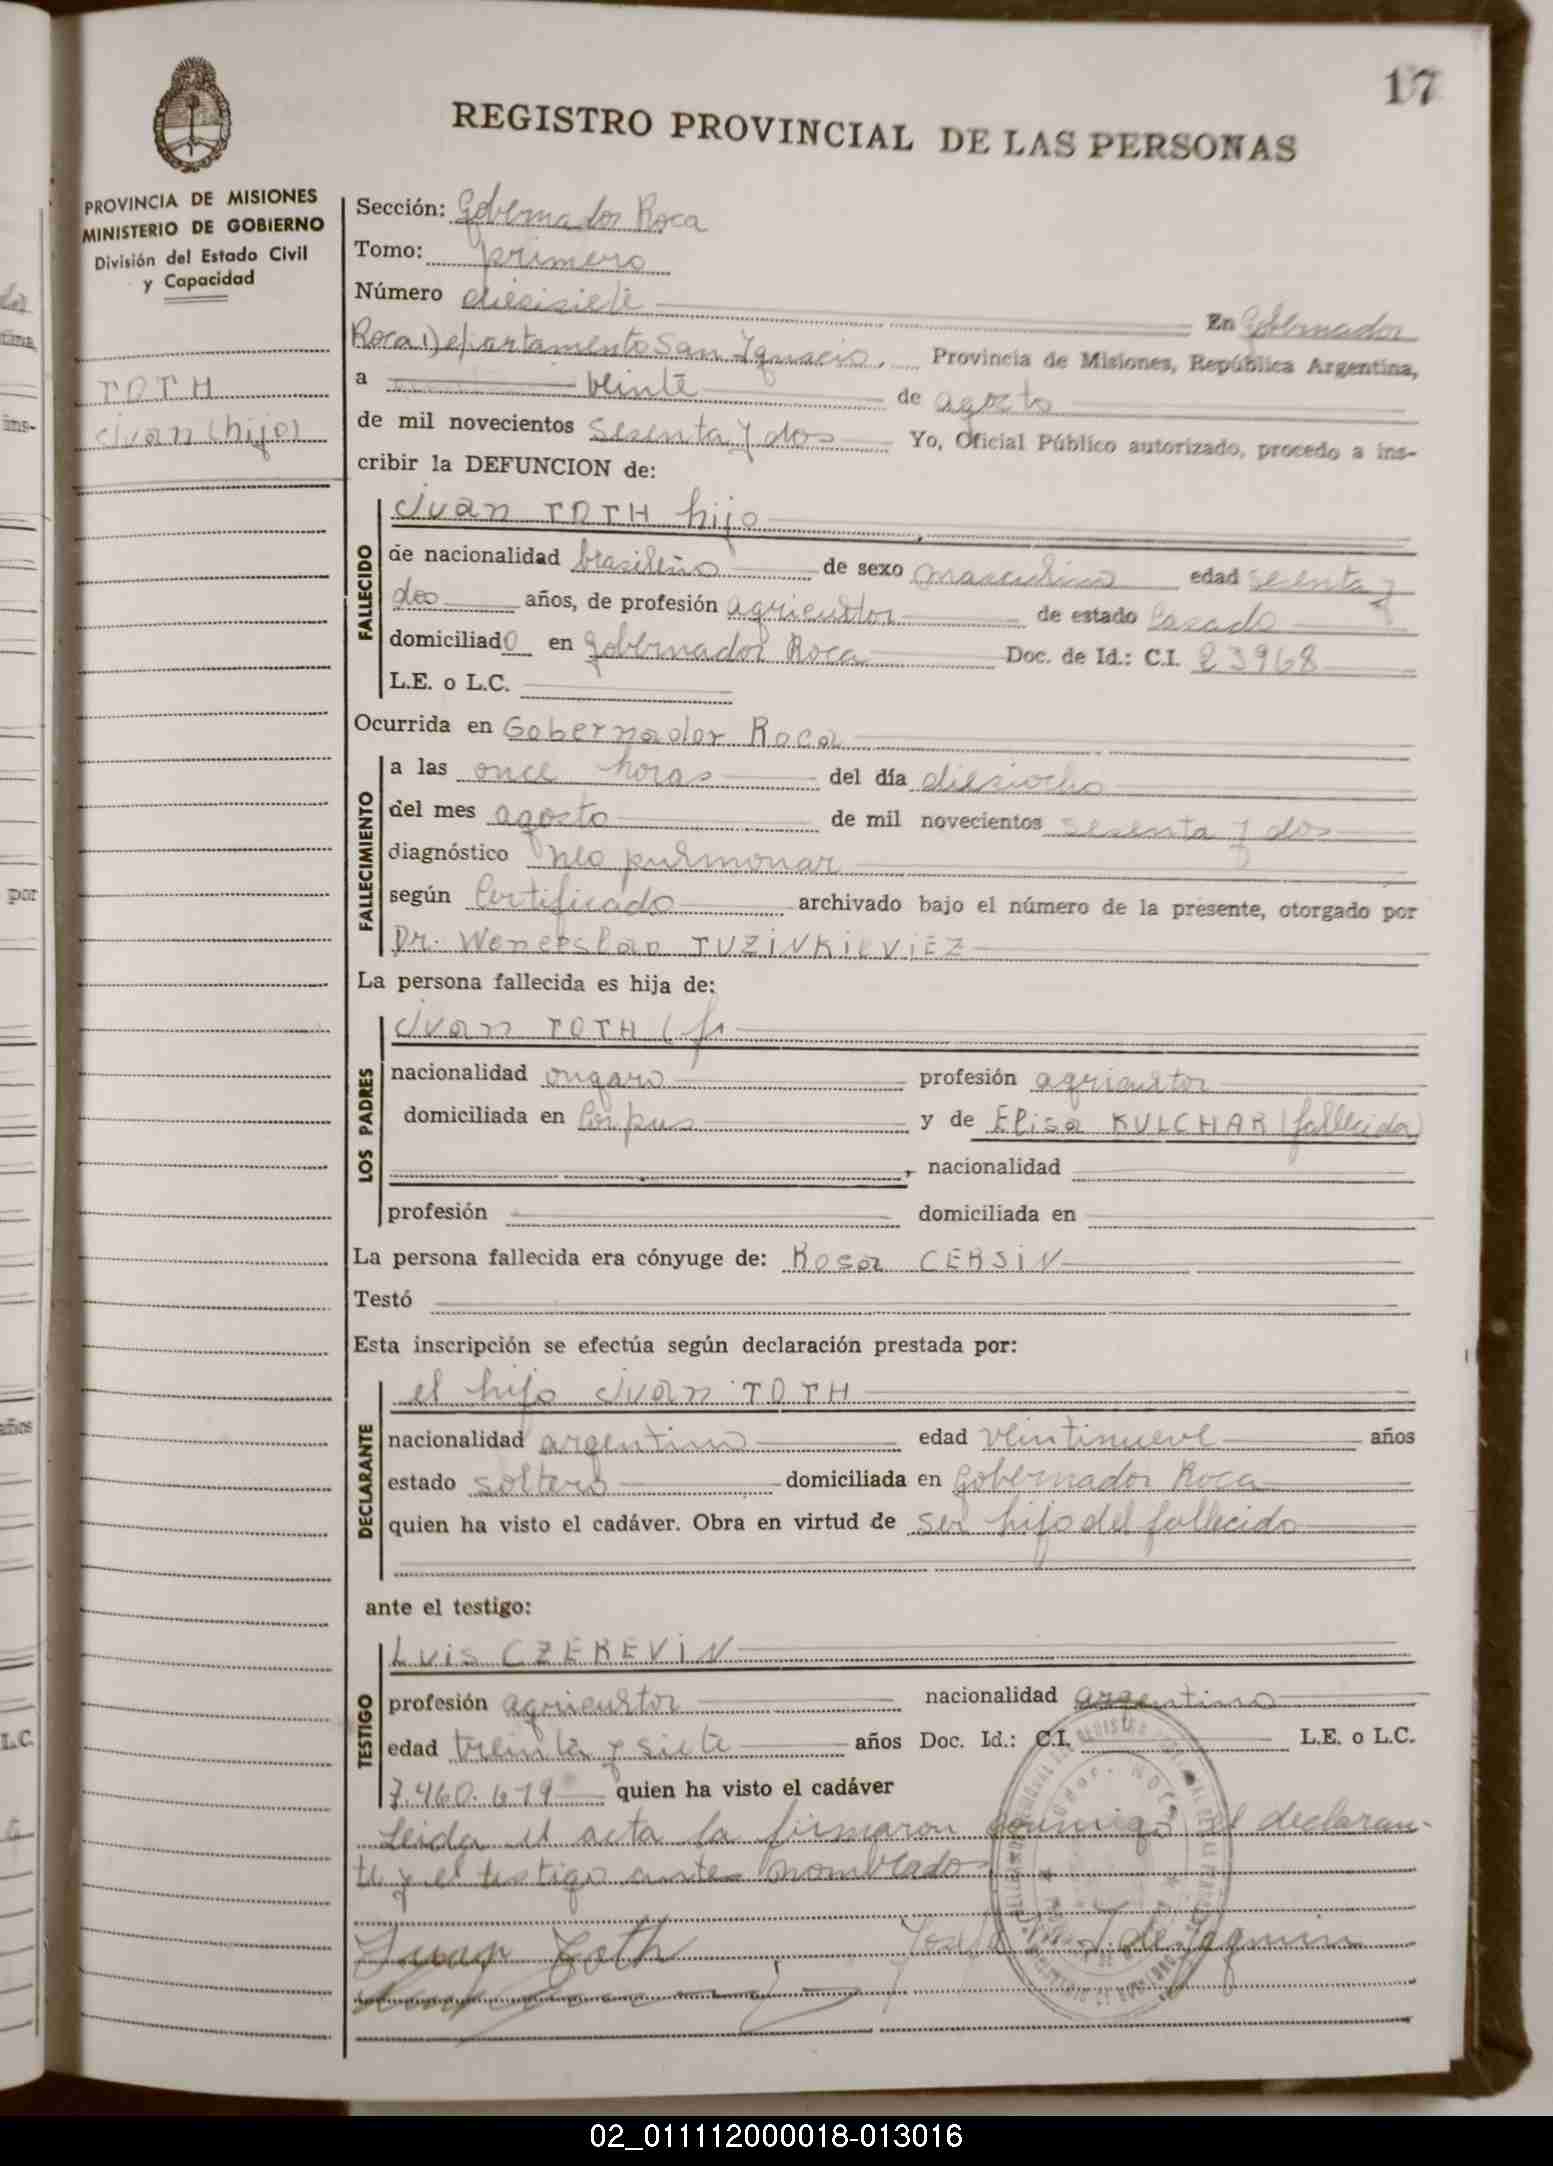 17
REGISTRO PROVINCIAL DE LAS PERSONAS
PROVINCIA DE MISIONES
MINISTERIO DE GOBIERNO
División del Estado Civil
y Capacidad
TOTH
Juan (hijo)
Sección: Gobernador Roca
Tomo: primero
Número diecisiete En Gobernador
Roca Departamento San Ignacio, Provincia de Misiones, República Argentina,
a veinte de agosto
de mil novecientos sesenta y dos Yo, Oficial Público autorizado, procedo a ins-
cribir la DEFUNCION de:
FALLECIDO
Juan TOTH hijo
de nacionalidad brasileño de sexo masculino edad sesenta y
dos años, de profesión agricultor de estado casado
domiciliado en Gobernador Roca Doc. de Id.: C.I. 23968
L.E. o L.C.
Ocurrida en Gobernador Roca
FALLECIMIENTO
a las once horas del día dieciocho
del mes agosto de mil novecientos sesenta y dos
diagnóstico Neo pulmonar
según Certificado archivado bajo el número de la presente, otorgado por
Dr. Wenceslao TUZINKIEVIEZ
La persona fallecida es hija de:
LOS PADRES
Juan TOTH (f.
nacionalidad ongaro profesión agricultor
domiciliada en Corpus y de Elisa KULCHAR (fallecida)
, nacionalidad
profesión domiciliada en
La persona fallecida era cónyuge de: Rosa CERSIN
Testó
Esta inscripción se efectúa según declaración prestada por:
DECLARANTE
el hijo Juan TOTH
nacionalidad argentino edad veintinueve años
estado soltero domiciliada en Gobernador Roca
quien ha visto el cadáver. Obra en virtud de ser hijo del fallecido
ante el testigo:
TESTIGO
LUIS CZEREVIN
profesión agricultor nacionalidad argentino
edad treinta y siete años Doc. Id.: C.I. L.E. o L.C.
7.460.619 quien ha visto el cadáver
Leida el acta la firmaron conmigo el declaran-
te y el testigo antes nombrado
Juan Toth
02_011112000018-013016